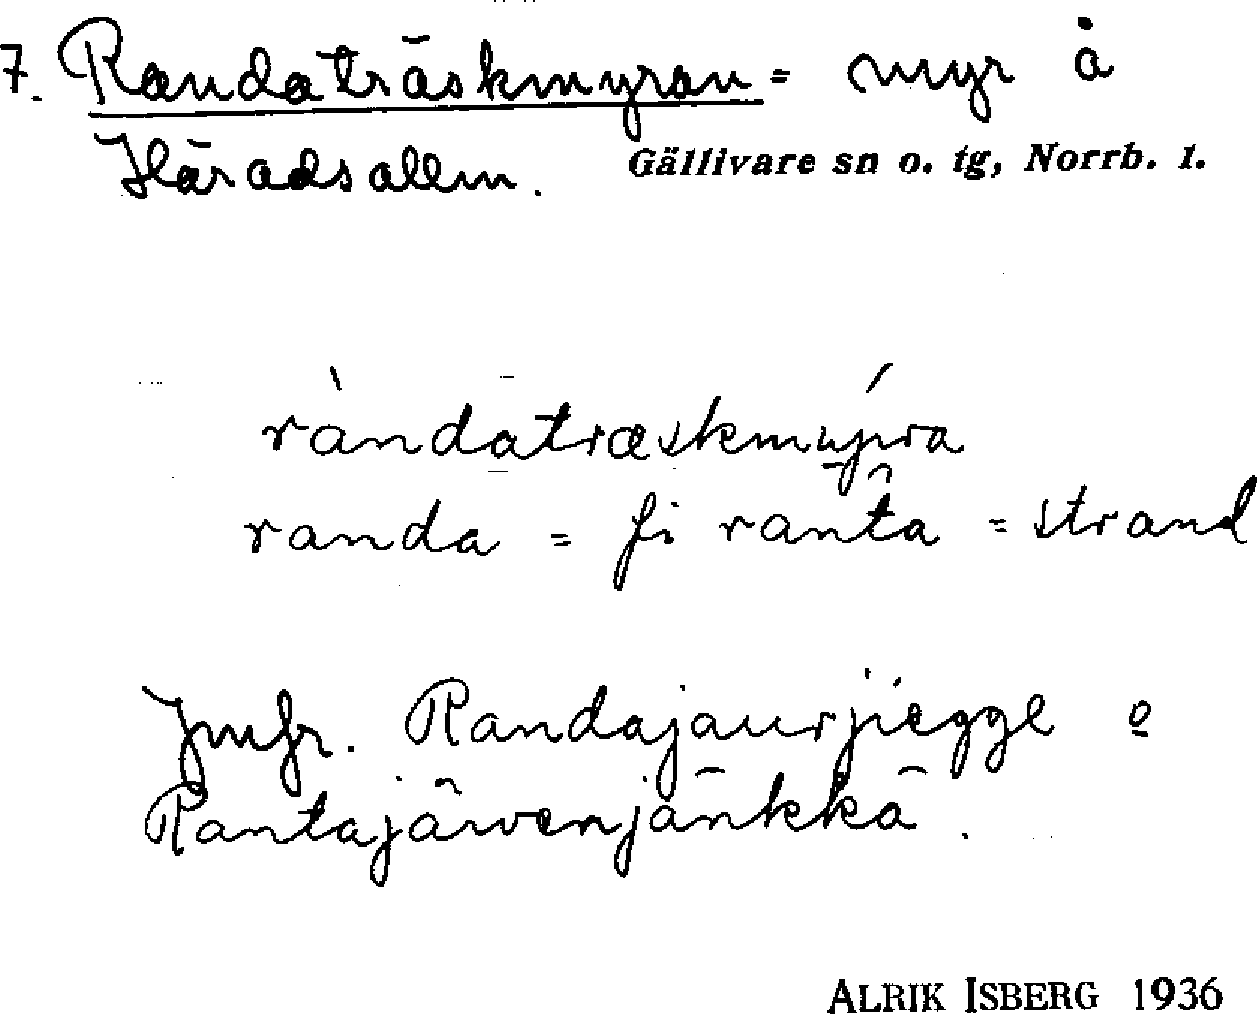 7. Randaträskmyran = myr å
Häradsallm. Gällivare sn o. tg, Norrb. l.
ràndatræskmýra
randa = fi ranta = strand
Jmfr. Randajaurjiegge o
Rantajärvenjänkkä.
ALRIK ISBERG 1936